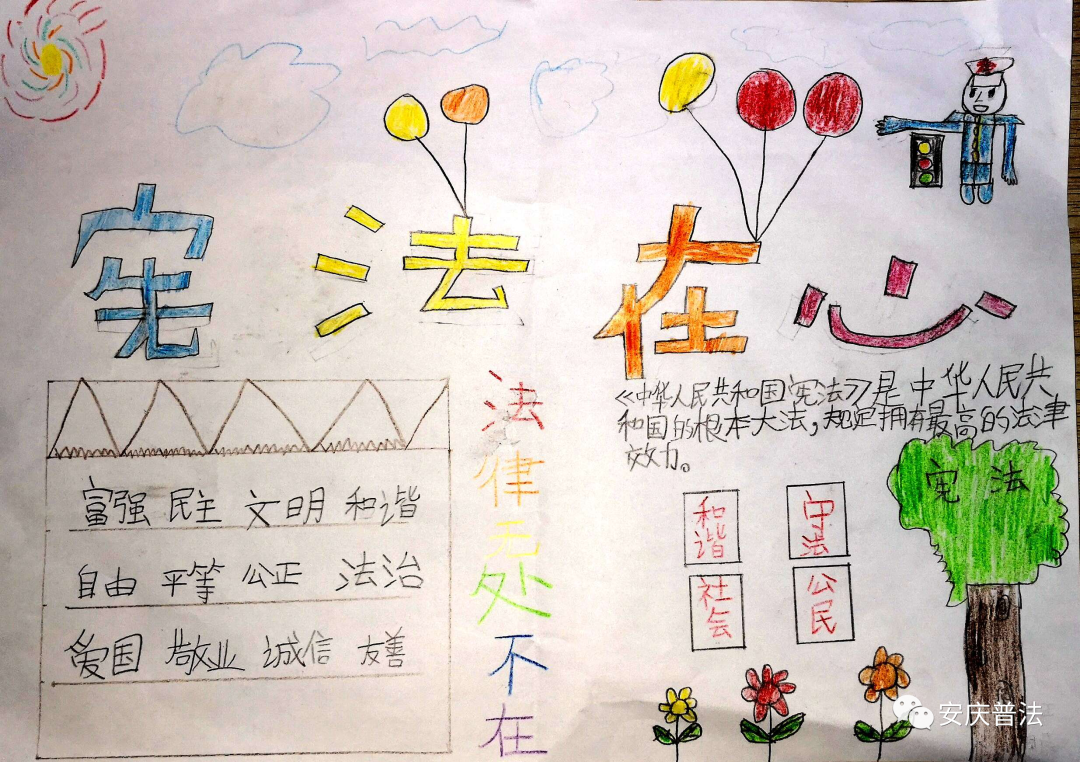 宪法在心
富强 民主 文明 和谐
自由 平等 公正 法治
爱国 敬业 诚信 友善
法律无处不在
《中华人民共和国宪法》是中华人民共
和国的根本大法，规定拥有最高的法律
效力。
和谐
社会
守法
公民
宪法
安庆普法